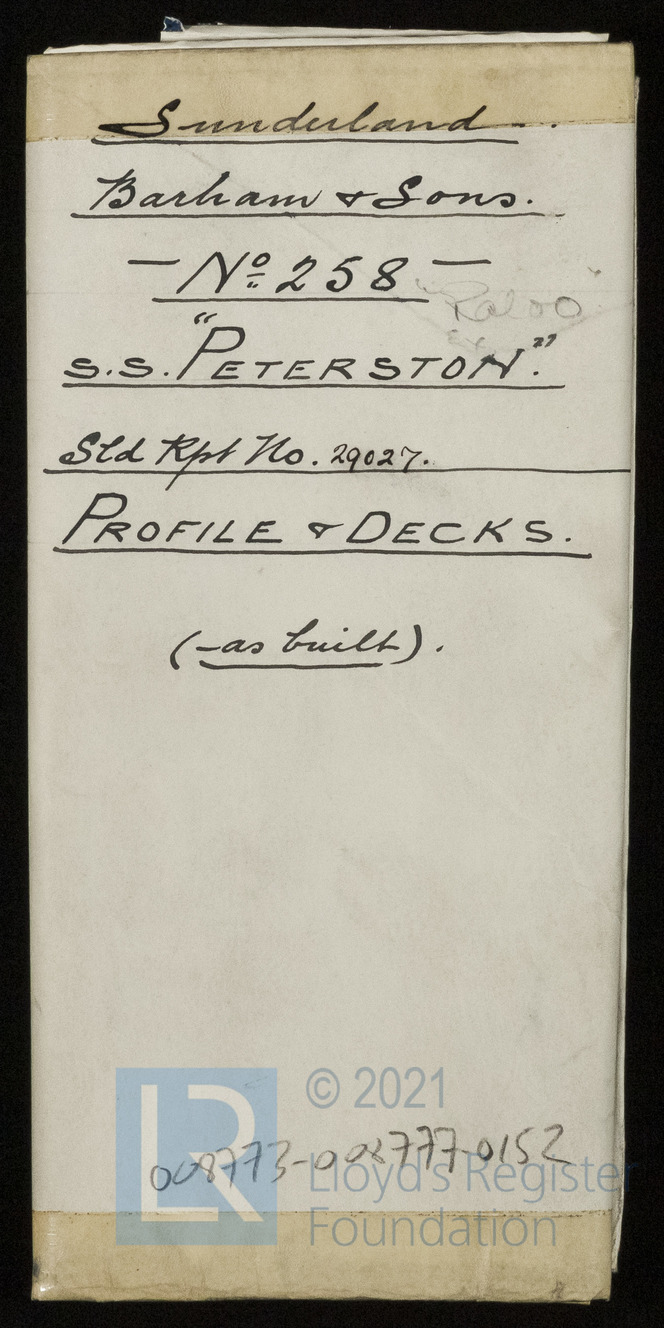 Sunderland
Barham & Sons.
— No 258 —
S.S. "PETERSTON".
Sld Rpt No. 29027.
PROFILE & DECKS.
(-as built).
© 2021
LR
008773-008777-0152
Lloyd's Register
Foundation